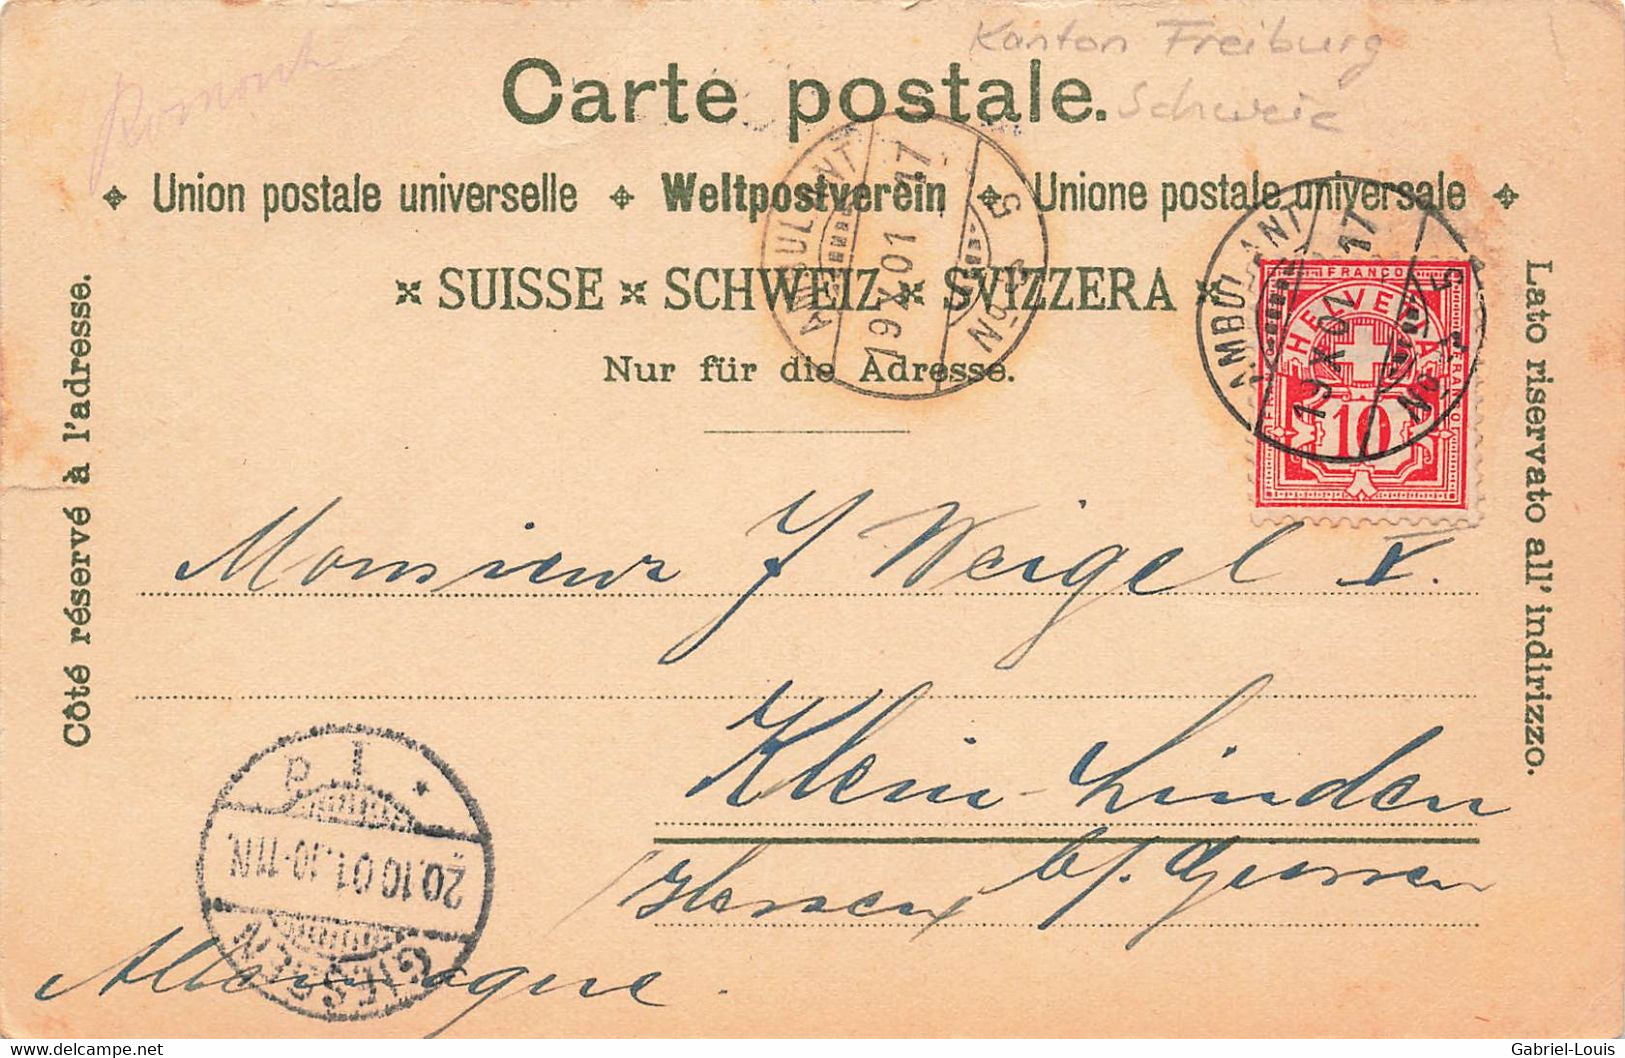 Kanton Freiburg
Schweiz
Romont
Carte postale.
Union postale universelle Weltpostverein Unione postale universale
SUISSE SCHWEIZ SVIZZERA
Nur für die Adresse.
Côté réservé à l'adresse.
Lato riservato all' indirizzo.
AMBULANT
19 X 01 17
S No
AMBULANT
19 X 01 17
S No
FRANCO
HELVETIA
FRANCO
FRANCO
10
Monsieur J Weigel V.
Klein-Linden
b/. Giessen
Hessen
Allemagne.
GIESSEN
20.10.01.10-11N.
P. I *
Gabriel-Louis